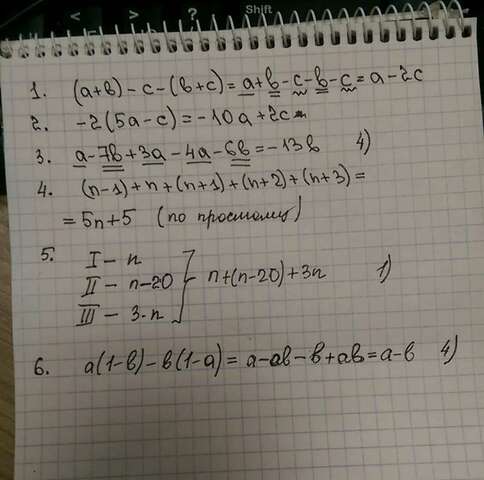 < > ? Shift
1. (a+b)-c-(b+c)=a+b-c-b-c=a-2c
2. -2(5a-c)=-10a+2c
3. a-7b+3a-4a-6b=-13b 4)
4. (n-1)+n+(n+1)+(n+2)+(n+3)=
=5n+5 (по простому)
5. I - n
II - n-20 n+(n-20)+3n 1)
III - 3·n
6. a(1-b)-b(1-a)=a-ab-b+ab=a-b 4)